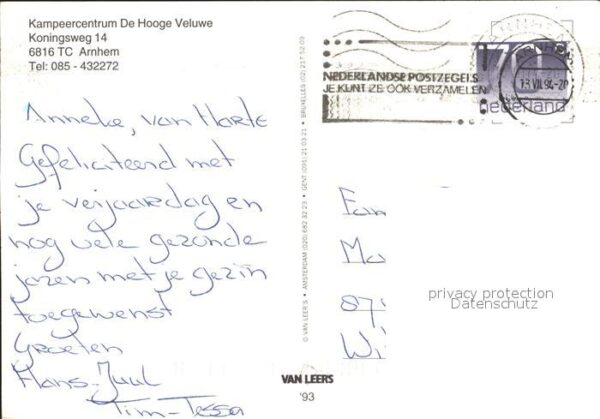 Kampeercentrum De Hooge Veluwe
Koningsweg 14
6816 TC Arnhem
Tel: 085 - 432272
Anneke, van Harte
Gefeliciteerd met
je verjaardag en
nog vele gezonde
jaren met je gezin
toegewenst
Groeten
Hans-Juul
Tim-Tessa
© VAN LEER'S • AMSTERDAM (020) 682 32 23 • GENT (091) 21 03 21 • BRUXELLES (02) 217 52 09
VAN LEERS
'93
NEDERLANDSE POSTZEGELS
JE KUNT ZE OOK VERZAMELEN
ARNHEM
ARNHEM
nederland
Fam
Ma
879
Wi
privacy protection
Datenschutz